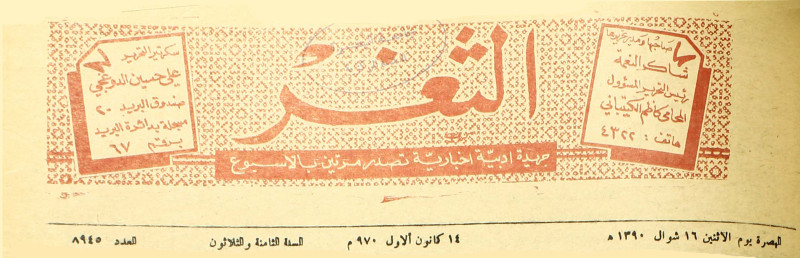 صاحبها ومدير تحريرها
شاكر النعمة
رئيس التحرير المسؤول
المحامي كاظم الكيتباني
هاتف : ٤٣٢٢
الثغر
سكرتير التحرير
علي حسين الدوغجي
صندوق البريد ٢٠
مسجلة بدائرة البريد
برقم ٦٧
جريدة ادبية اخبارية تصدر مرتين بالاسبوع
البصرة يوم الاثنين ١٦ شوال ١٣٩٠ هـ ١٤ كانون الاول ٩٧٠ م السنة الثامنة والثلاثون العدد ٨٩٤٥